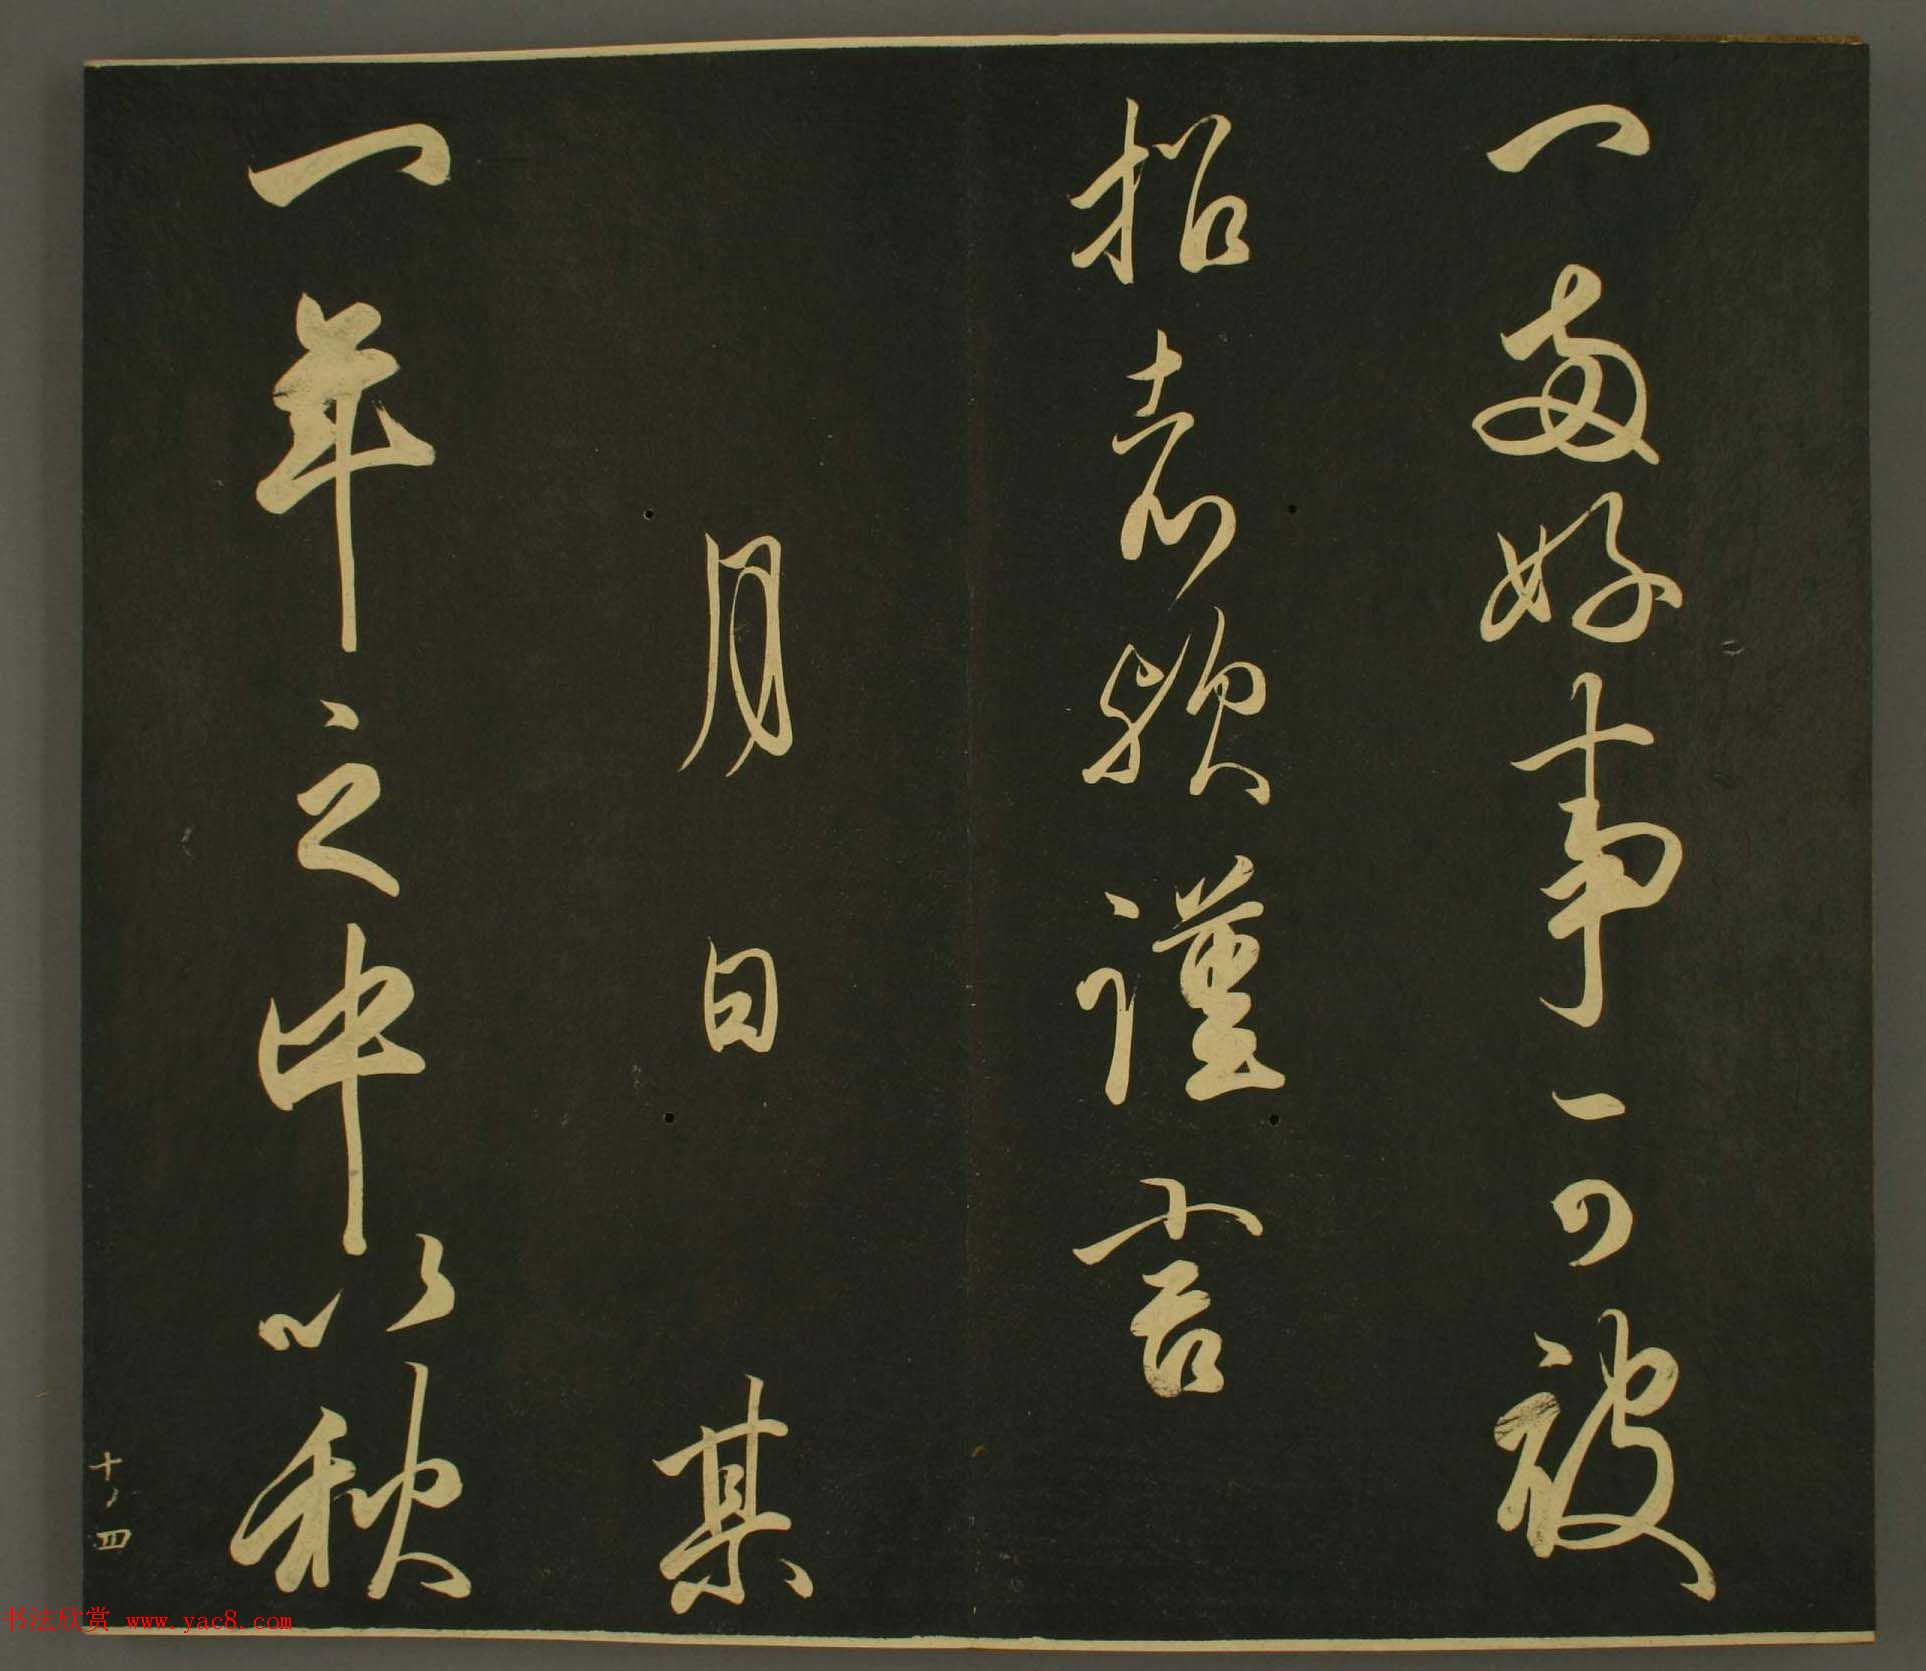 一両好事可被
招者歟謹言
月日某
一年之中以秋
十ノ四
书法欣赏 www.yac8.com